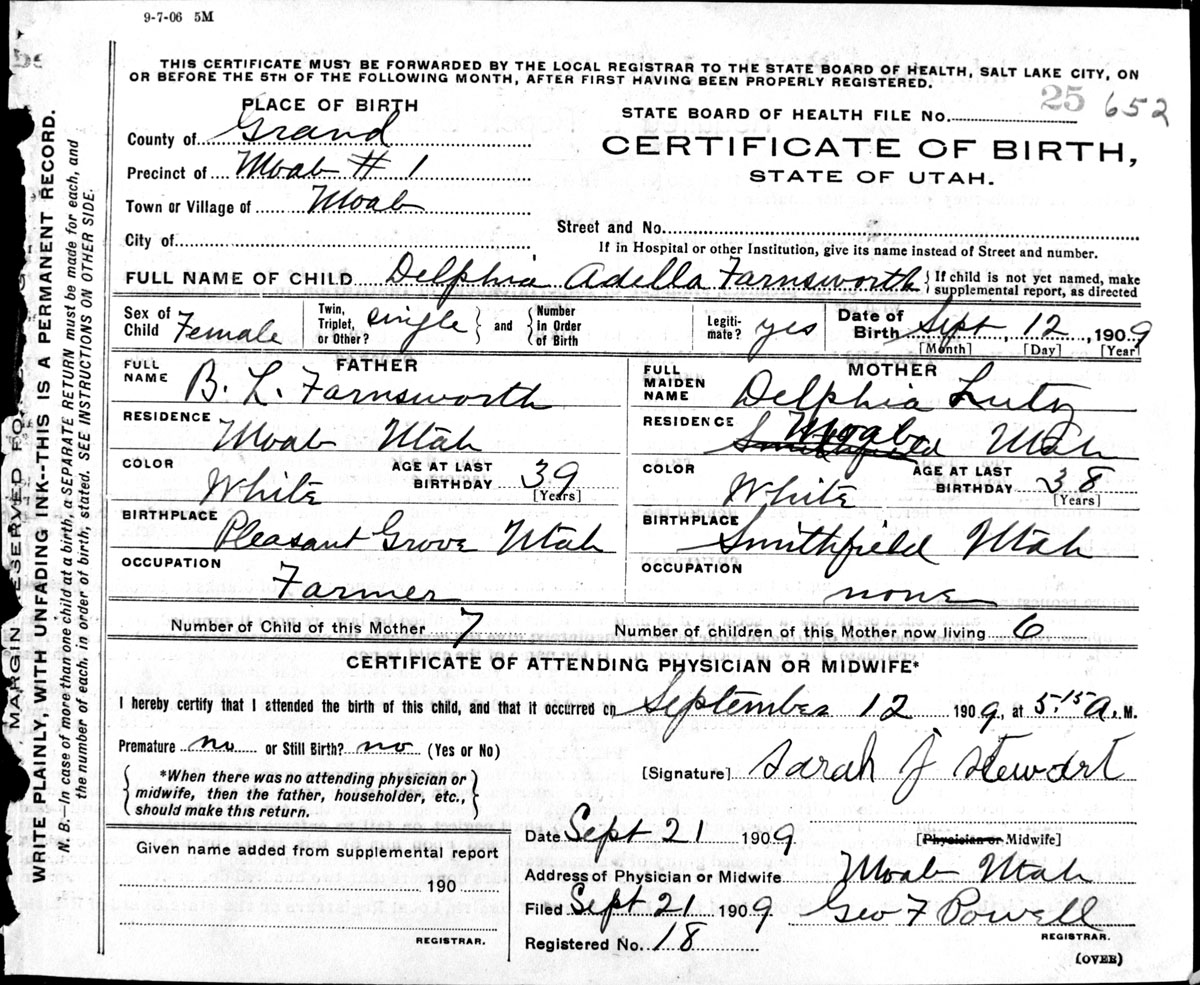 9-7-06 5M
THIS CERTIFICATE MUST BE FORWARDED BY THE LOCAL REGISTRAR TO THE STATE BOARD OF HEALTH, SALT LAKE CITY, ON
OR BEFORE THE 5TH OF THE FOLLOWING MONTH, AFTER FIRST HAVING BEEN PROPERLY REGISTERED.
MARGIN RESERVED FO
WRITE PLAINLY, WITH UNFADING INK--THIS IS A PERMANENT RECORD.
N. B.—In case of more than one child at a birth, a SEPARATE RETURN must be made for each, and
the number of each, in order of birth, stated. SEE INSTRUCTIONS ON OTHER SIDE.
PLACE OF BIRTH
County of Grand
Precinct of Moab # 1
Town or Village of Moab
City of
25 652
STATE BOARD OF HEALTH FILE No.
CERTIFICATE OF BIRTH,
STATE OF UTAH.
Street and No.
If in Hospital or other Institution, give its name instead of Street and number.
FULL NAME OF CHILD Delphia Adella Farnsworth { If child is not yet named, make
supplemental report, as directed
Sex of Child Female Twin, Triplet, or Other? single } and { Number In Order of Birth Legiti- mate? yes Date of Birth Sept 12, 1909
[Month] [Day] [Year]
FATHER
FULL NAME B. L. Farnsworth
RESIDENCE Moab Utah
COLOR White AGE AT LAST BIRTHDAY 39
[Years]
BIRTHPLACE Pleasant Grove Utah
OCCUPATION Farmer
MOTHER
FULL MAIDEN NAME Delphia Lutz
RESIDENCE Moab
Smithfield Utah
COLOR White AGE AT LAST BIRTHDAY 38
[Years]
BIRTHPLACE Smithfield Utah
OCCUPATION none
Number of Child of this Mother 7 Number of children of this Mother now living 6
CERTIFICATE OF ATTENDING PHYSICIAN OR MIDWIFE*
I hereby certify that I attended the birth of this child, and that it occurred on September 12 1909, at 5:15 A. M.
Premature no or Still Birth? no (Yes or No)
{ *When there was no attending physician or
midwife, then the father, householder, etc.,
should make this return. }
[Signature] Sarah J Stewart
Given name added from supplemental report
190
REGISTRAR.
Date Sept 21 1909 [Physician or Midwife]
Address of Physician or Midwife Moab Utah
Filed Sept 21 1909 Geo F Powell
REGISTRAR.
Registered No. 18
(OVER)